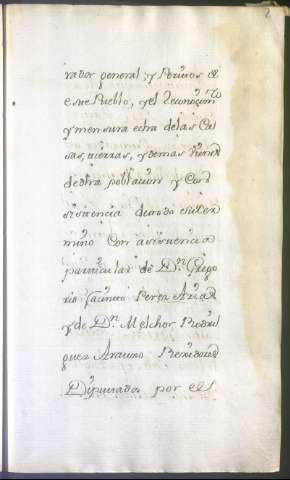 2
rador general; y Peritos de
este Pueblo, y el Reconocimto
y mensura echa de las Ca
sas, tierras, y demas
de dha poblacion y Con
sistencia de todo su ter
mino Con asistencia
particular de Dn. Grego
rio Jacinto Perez Arias
y de Dn. Melchor Rodri
guez Araujo Rexidores
Diputados por el